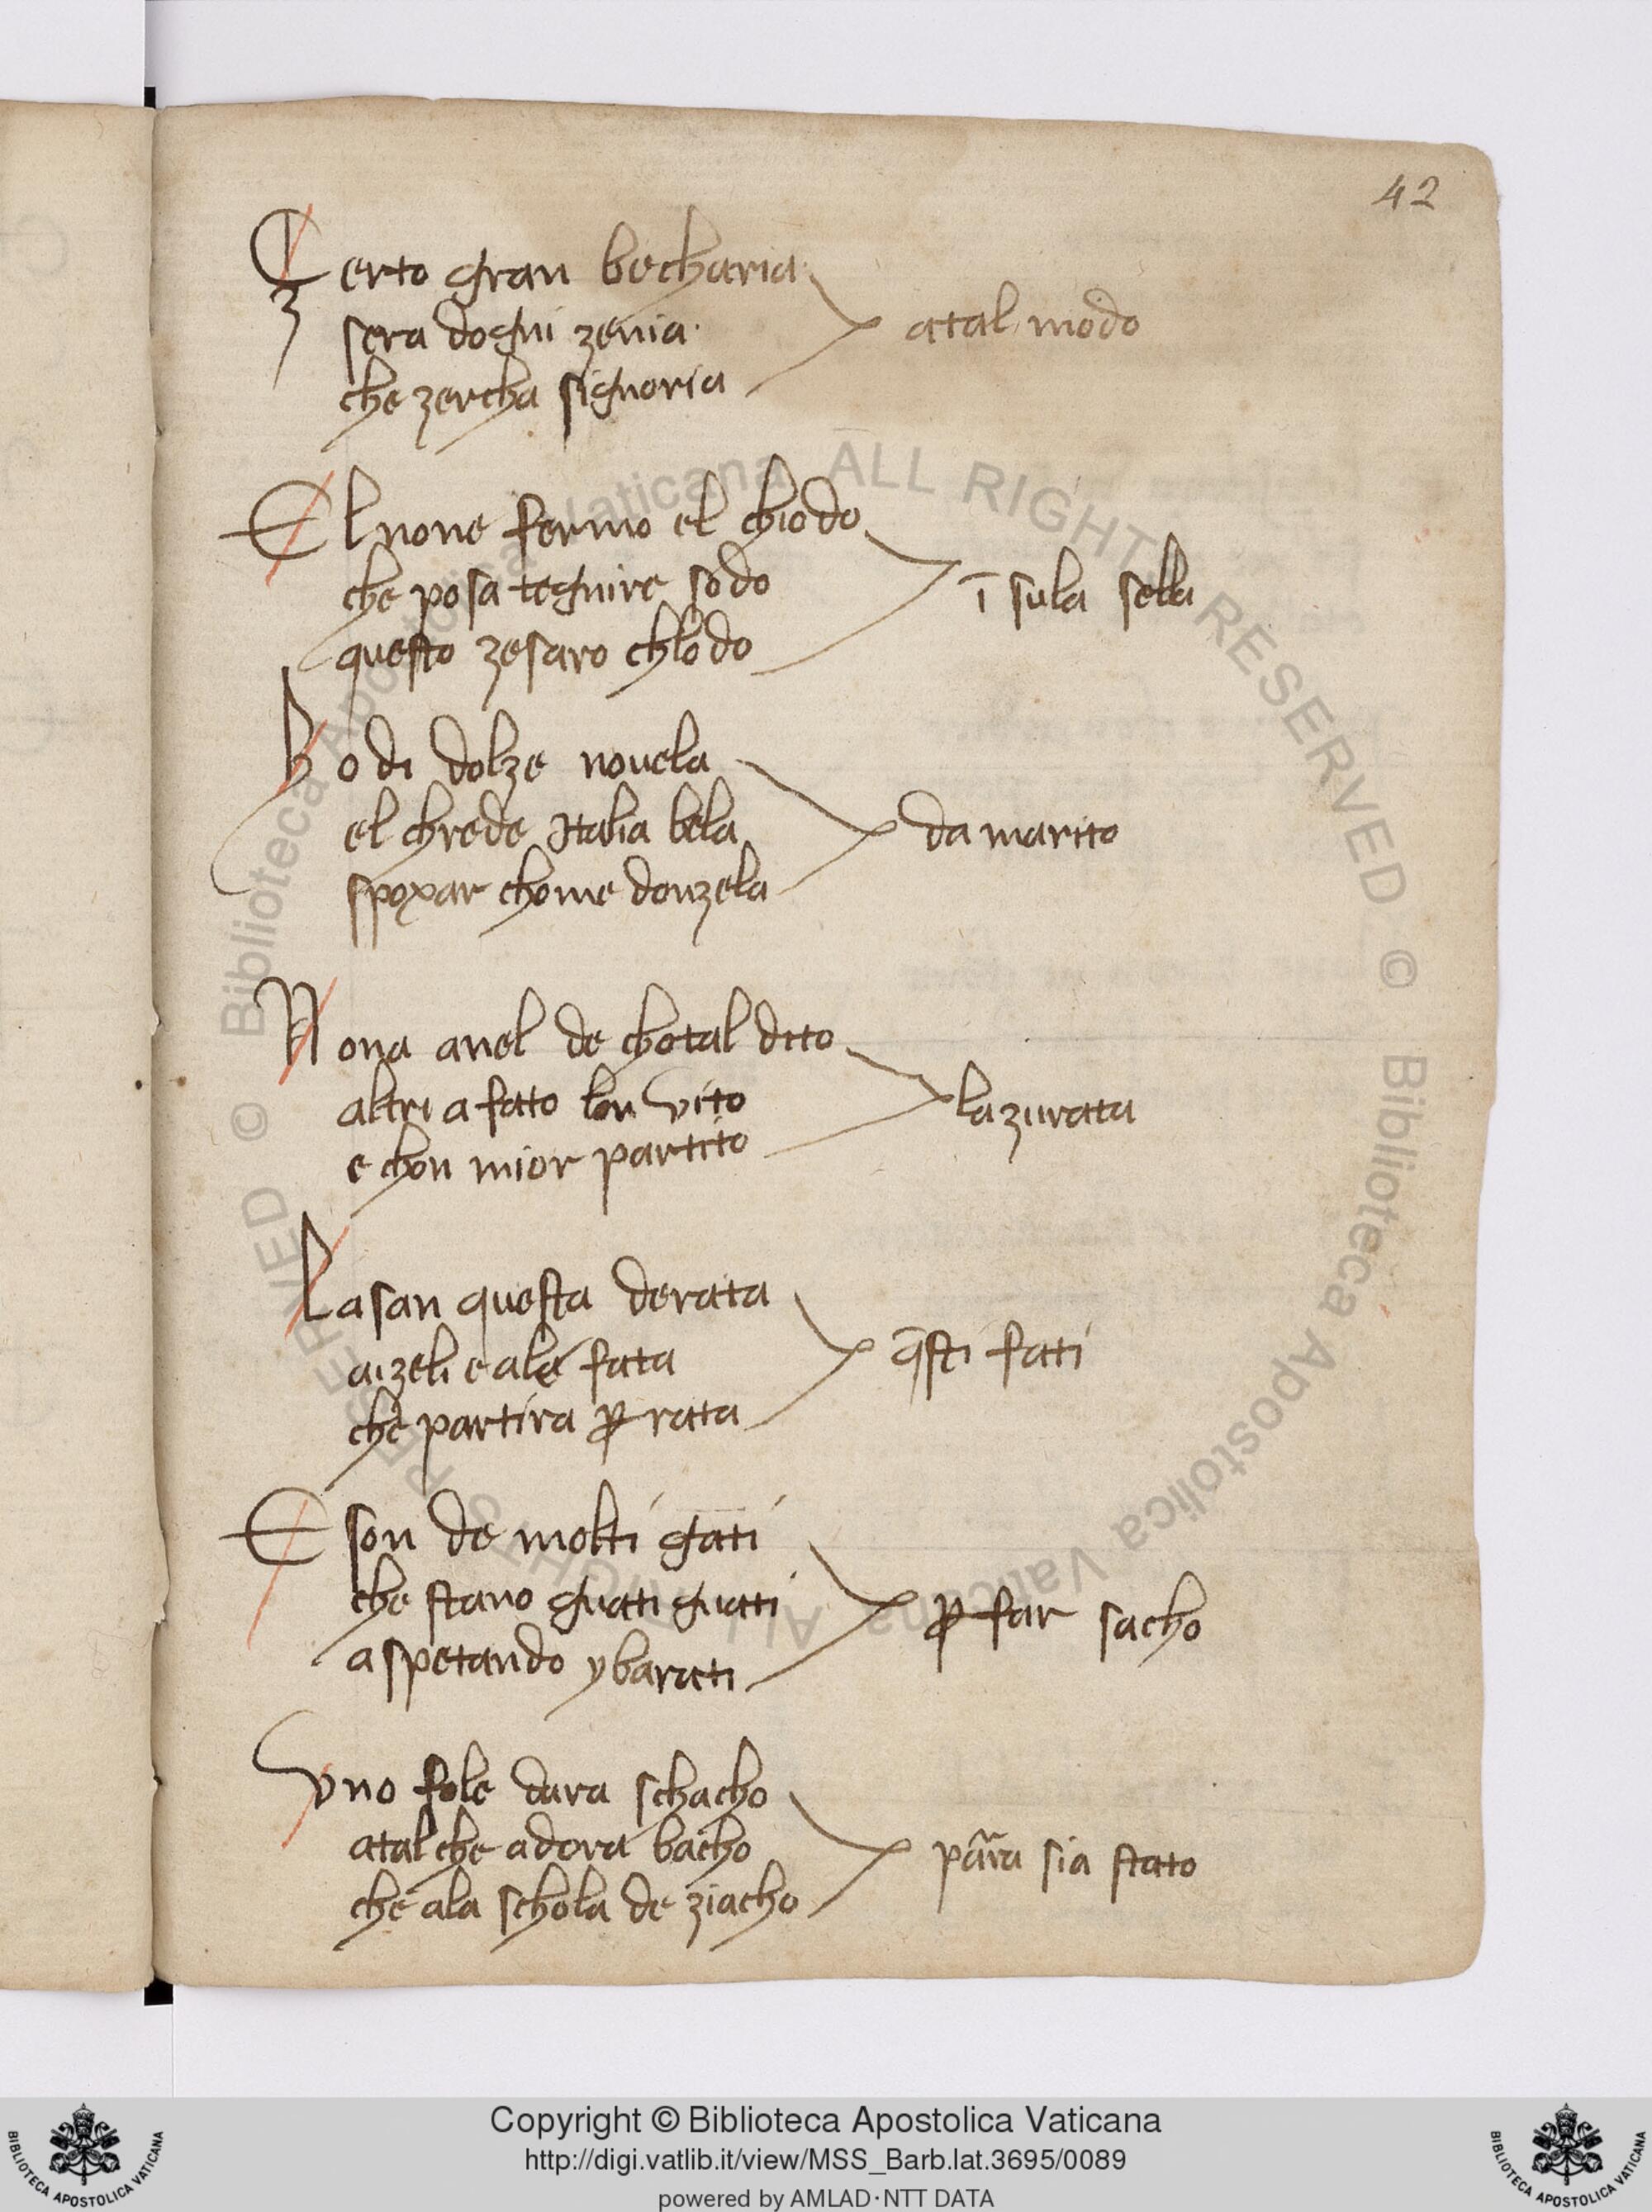 42
Çerto gran becharia
sera dogni zenia
che zercha signoria
atal modo
El none fermo el chiodo
che posa tegnire sodo
questo zesaro chlodo
ī sula sella
Ho di dolze nouela
el chrede Italia bela
spoxar chome donzela
da marito
Nona anel de chotal dito
altri a fato lon vito
e chon mior partito
la zurata
Lasan questa derata
ai zeli e ale fata
che partira ꝑ rata
q̄sti fati
E son de molti gati
che stano guati guati
aspetando y barati
ꝑ far sacho
Vno fole dara schacho
atal che adora bacho
che ala schola de ziacho
sia stato
© Biblioteca Apostolica Vaticana ALL RIGHTS RESERVED © Biblioteca Apostolica Vaticana ALL RIGHTS RESERVED
BIBLIOTECA APOSTOLICA VATICANA
Copyright © Biblioteca Apostolica Vaticana
http://digi.vatlib.it/view/MSS_Barb.lat.3695/0089
powered by AMLAD·NTT DATA
BIBLIOTECA APOSTOLICA VATICANA